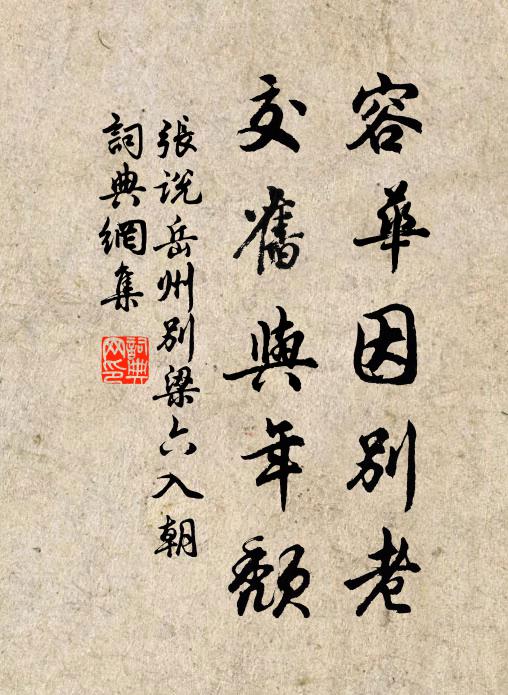 容華因別老
交舊與年頹
張說岳州別梁六入朝
詞典網集
詞典網印